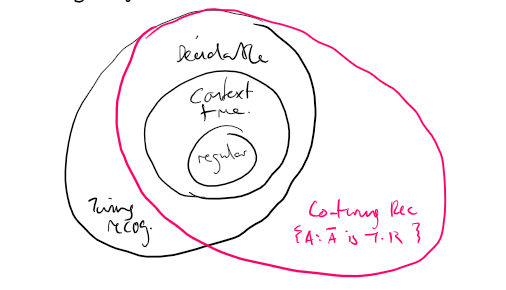 Decidable
Context
free.
regular
Turing
recog.
Co-turing Rec
{A: Ā is T.R }